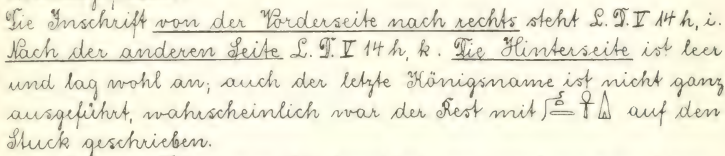 Die Inschrift von der Vorderseite nach rechts steht L. D. V 14 h, i.
Nach der anderen Seite L. D. V 14 h, k. Die Hinterseite ist leer
und lag wohl an; auch der letzte Königsname ist nicht ganz
ausgeführt, wahrscheinlich war der Rest mit auf den
Stuck geschrieben.